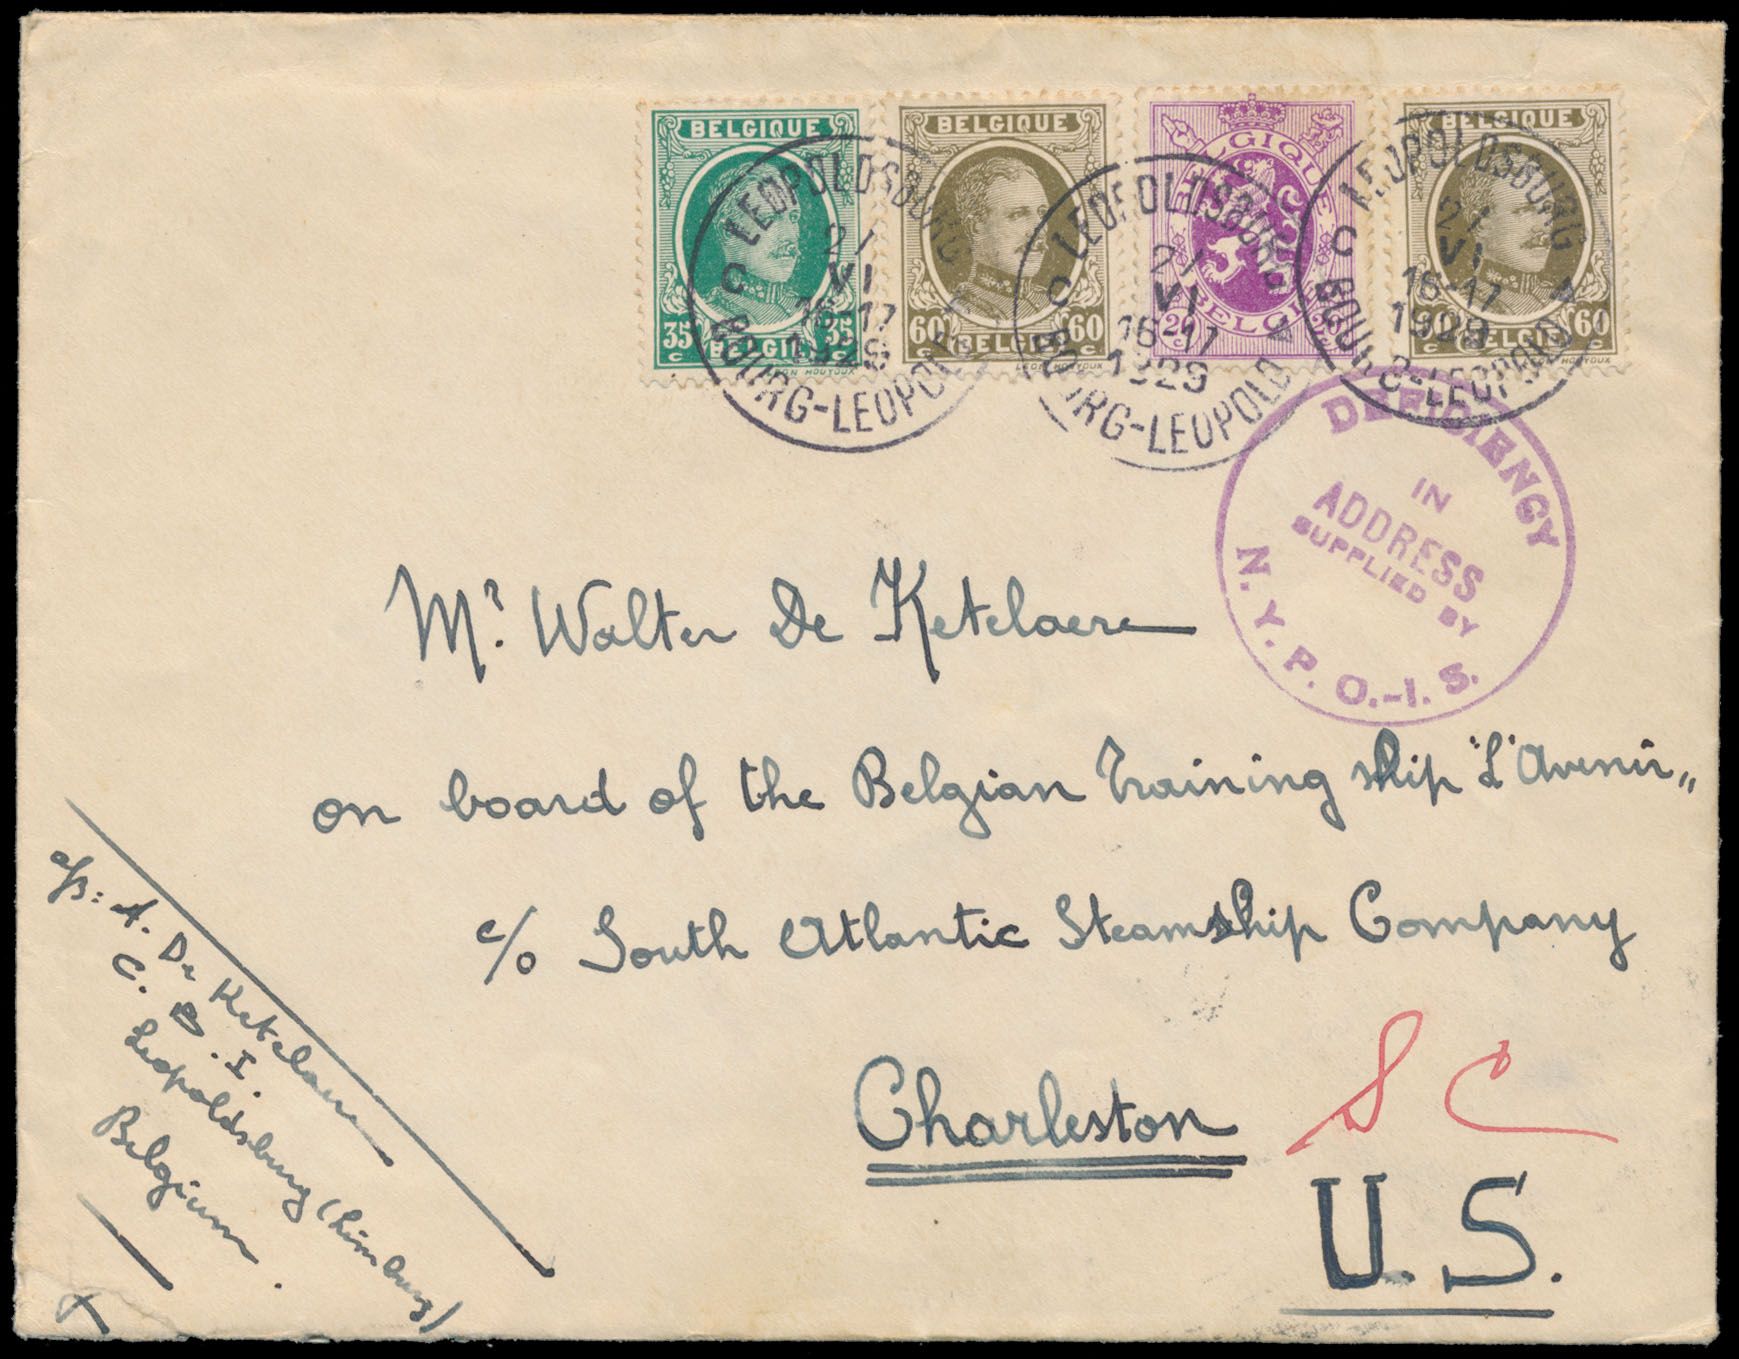 BELGIQUE
35 c BELGIË 35 c
LEON HOUYOUX
BELGIQUE
60 c BELGIË 60 c
LEON HOUYOUX
BELGIQUE
20 c BELGIË 20 c
BELGIQUE
60 c BELGIË 60 c
LEON HOUYOUX
LEOPOLDSBURG
C
21
VI
16-17
1929
BOURG-LEOPOLD
LEOPOLDSBURG
C
21
VI
16-17
1929
BOURG-LEOPOLD
LEOPOLDSBURG
C
21
VI
16-17
1929
BOURG-LEOPOLD
DEFICIENCY
IN
ADDRESS
SUPPLIED BY
N. Y. P. O.-I. S.
Mr. Walter De Ketelaere
on board of the Belgian Training ship "L'Avenir„
c/o South Atlantic Steamship Company
Charleston S C
U.S.
A. De Ketelaere
C. B. I.
Leopoldsburg (Limburg)
Belgium.